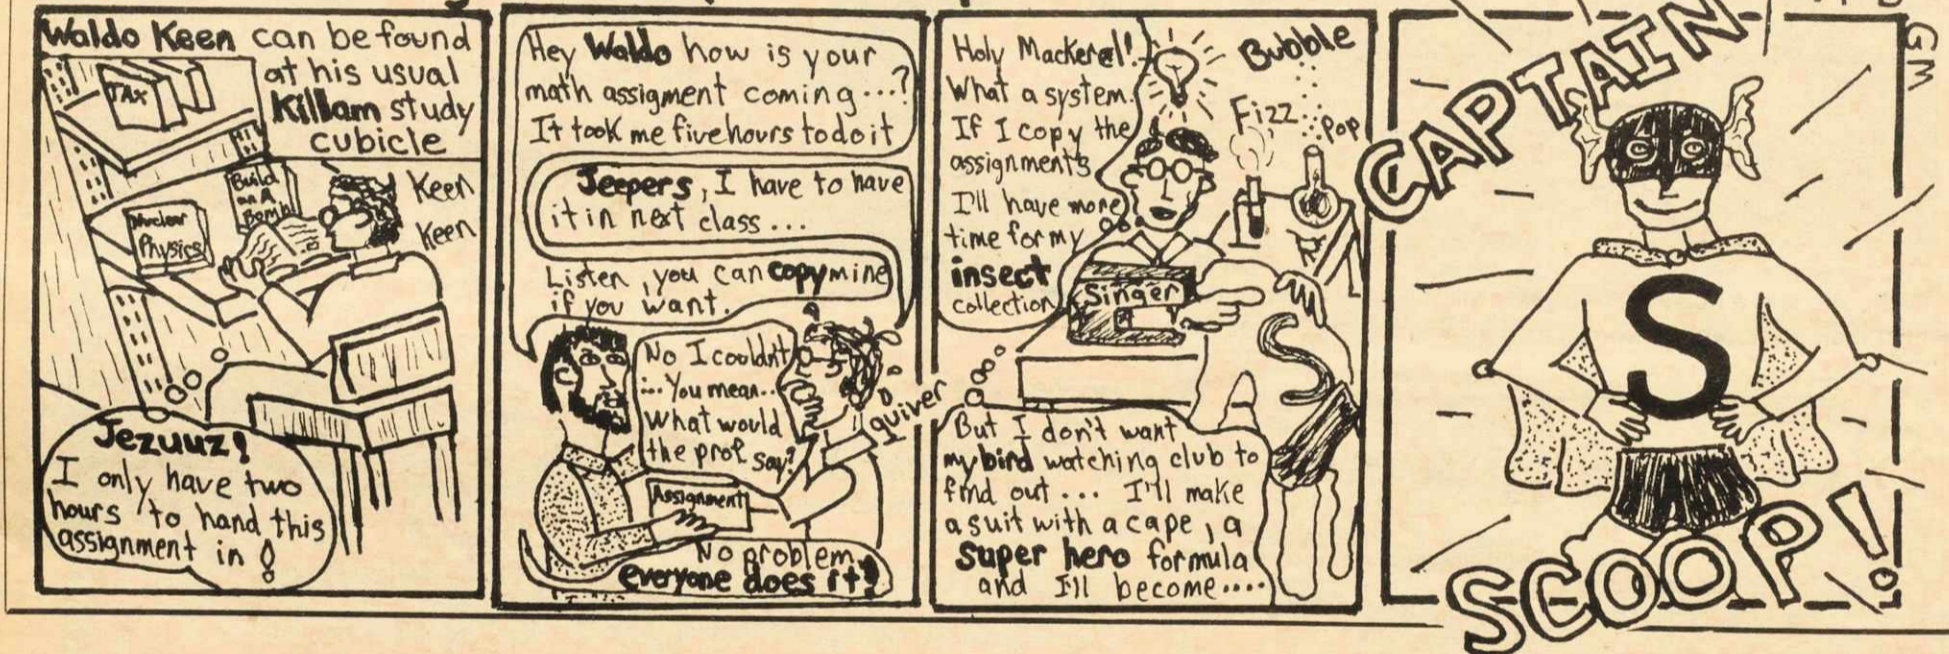 Waldo Keen can be found
at his usual
Killam study
cubicle
TAX
Nuclear
Physics
Build
an A
Bomb
Keen
Keen
Jezuuz!
I only have two
hours to hand this
assignment in!
Hey Waldo how is your
math assigment coming...?
It took me five hours to do it
Jeepers, I have to have
it in next class...
Listen, you can copy mine
if you want.
No I couldn't
... You mean..
What would
the prof say?
quiver
Assignment
No problem,
everyone does it!
Holy Mackeral!
What a system.
If I copy the
assignments
I'll have more
time for my
insect
collection
Bubble
Fizz
Pop
Singer
S
But I don't want
my bird watching club to
find out... I'll make
a suit with a cape, a
super hero formula
and I'll become....
CAPTAIN
S
SCOOP!
GM